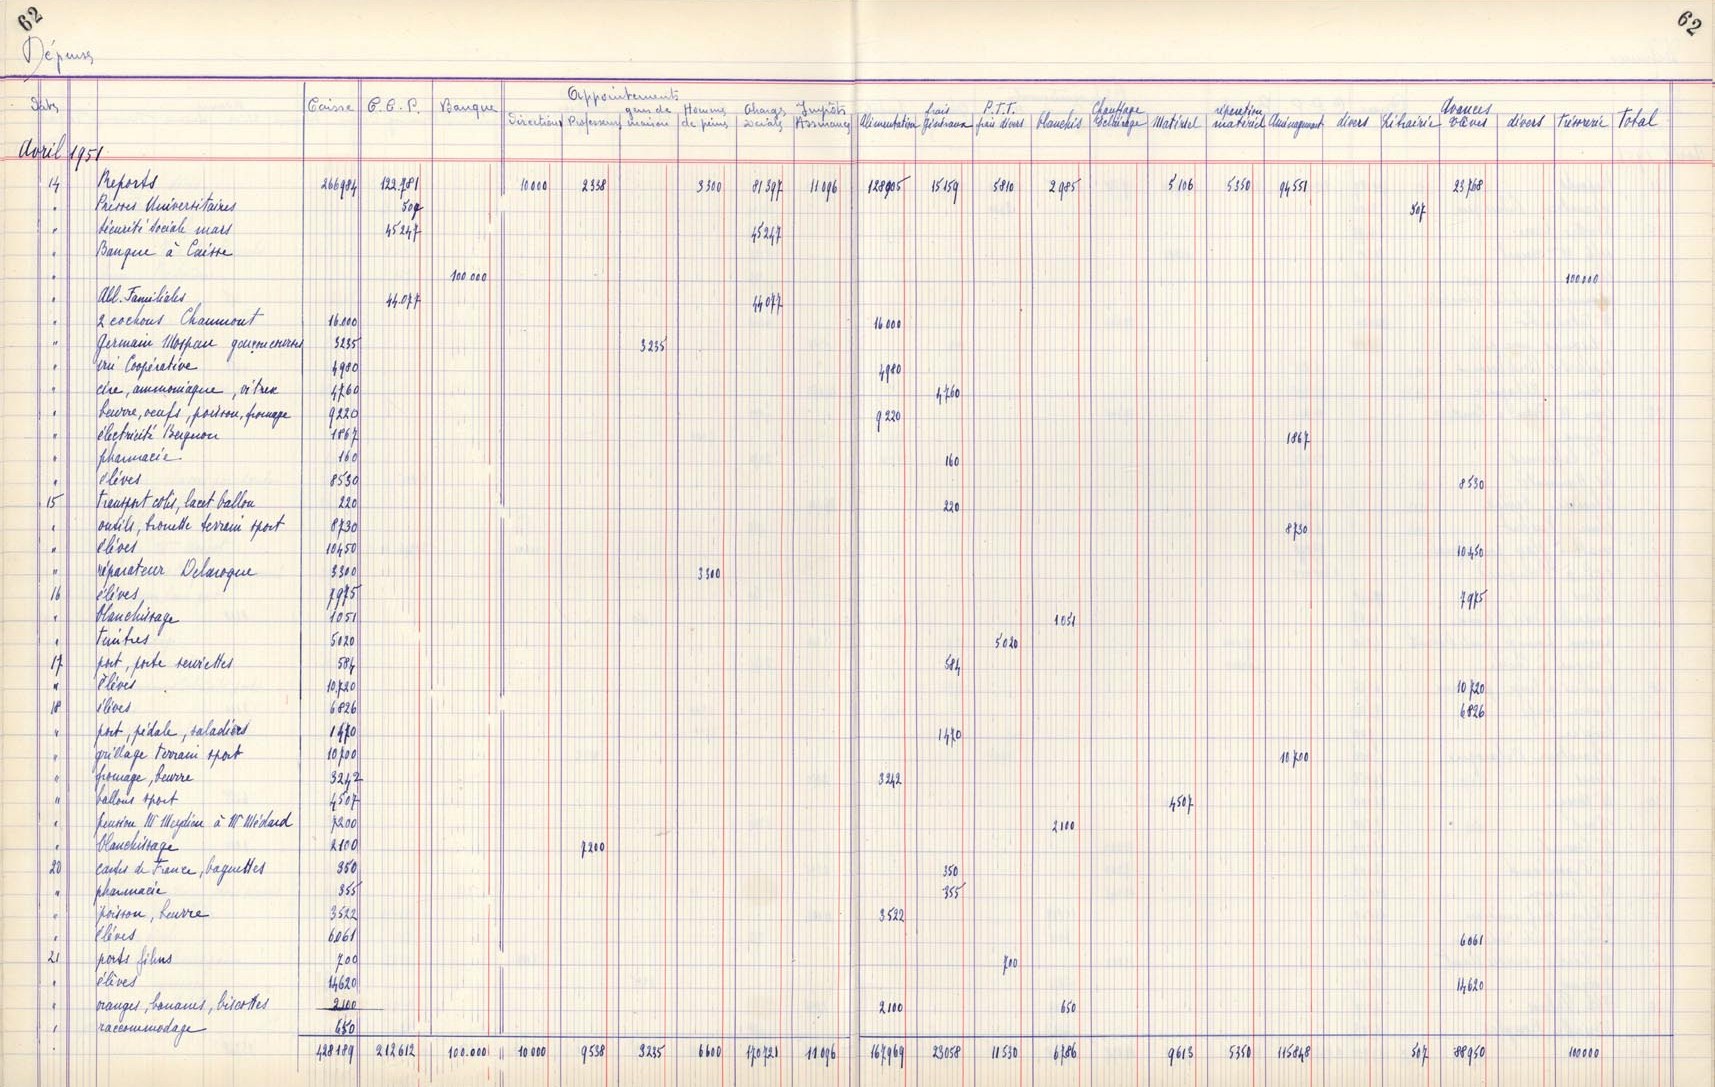 62
62
Dépenses
Appointements
Dates Caisse C.C.P. Banque Direction Professeurs gens de maison Homme de peine Charges Sociales Impôts Assurances Alimentation frais généraux P.T.T. frais divers blanchis Chauffage Eclairage Matériel réparation matériel Aménagement divers Librairie Avances élèves divers Trésorerie Total
Avril 1951
14 Reports 266984 122.781 10000 2338 3300 81397 11096 128905 15159 5810 2985 5106 5350 94551 23768
" Presses Universitaires 507 507
" Sécurité Sociale mars 45247 45247
" Banque à Caisse
" 100.000 100000
" All. Familiales 44.077 44077
" 2 cochons Chaumont 16.000 16000
" Germain garçon courses 3235 3235
" Coopérative 4980 4980
" cire, ammoniaque, vitrex 4760 4760
" beurre, oeufs, poisson, fromage 9220 9220
" électricité Beignon 1867 1867
" pharmacie 160 160
" élèves 8530 8530
15 transport colis, lacet ballon 220 220
" outils, brouette terrain sport 8730 8730
" élèves 10450 10450
" réparateur Delaroque 3300 3300
16 élèves 7975 7975
" blanchissage 1051 1051
" timbres 5020 5020
17 port, porte serviettes 584 584
" élèves 10.720 10720
18 élèves 6826 6826
" port, pédale, saladiers 1470 1470
" grillage terrain sport 10700 10700
" fromage, beurre 3242 3242
" ballons sport 4507 4507
" pension Mr Meydieu à Mr Médard 7200 2100
" blanchissage 2100 7200
20 cartes de France, baguettes 350 350
" pharmacie 355 355
" poisson, beurre 3522 3522
" élèves 6061 6061
21 ports films 700 700
" élèves 14620 14620
" oranges, bananes, biscottes 2100 2100 650
" raccommodage 650
428189 212612 100.000 10000 9538 3235 6600 170721 11096 167969 23058 11530 6786 9613 5350 115848 507 88950 100000